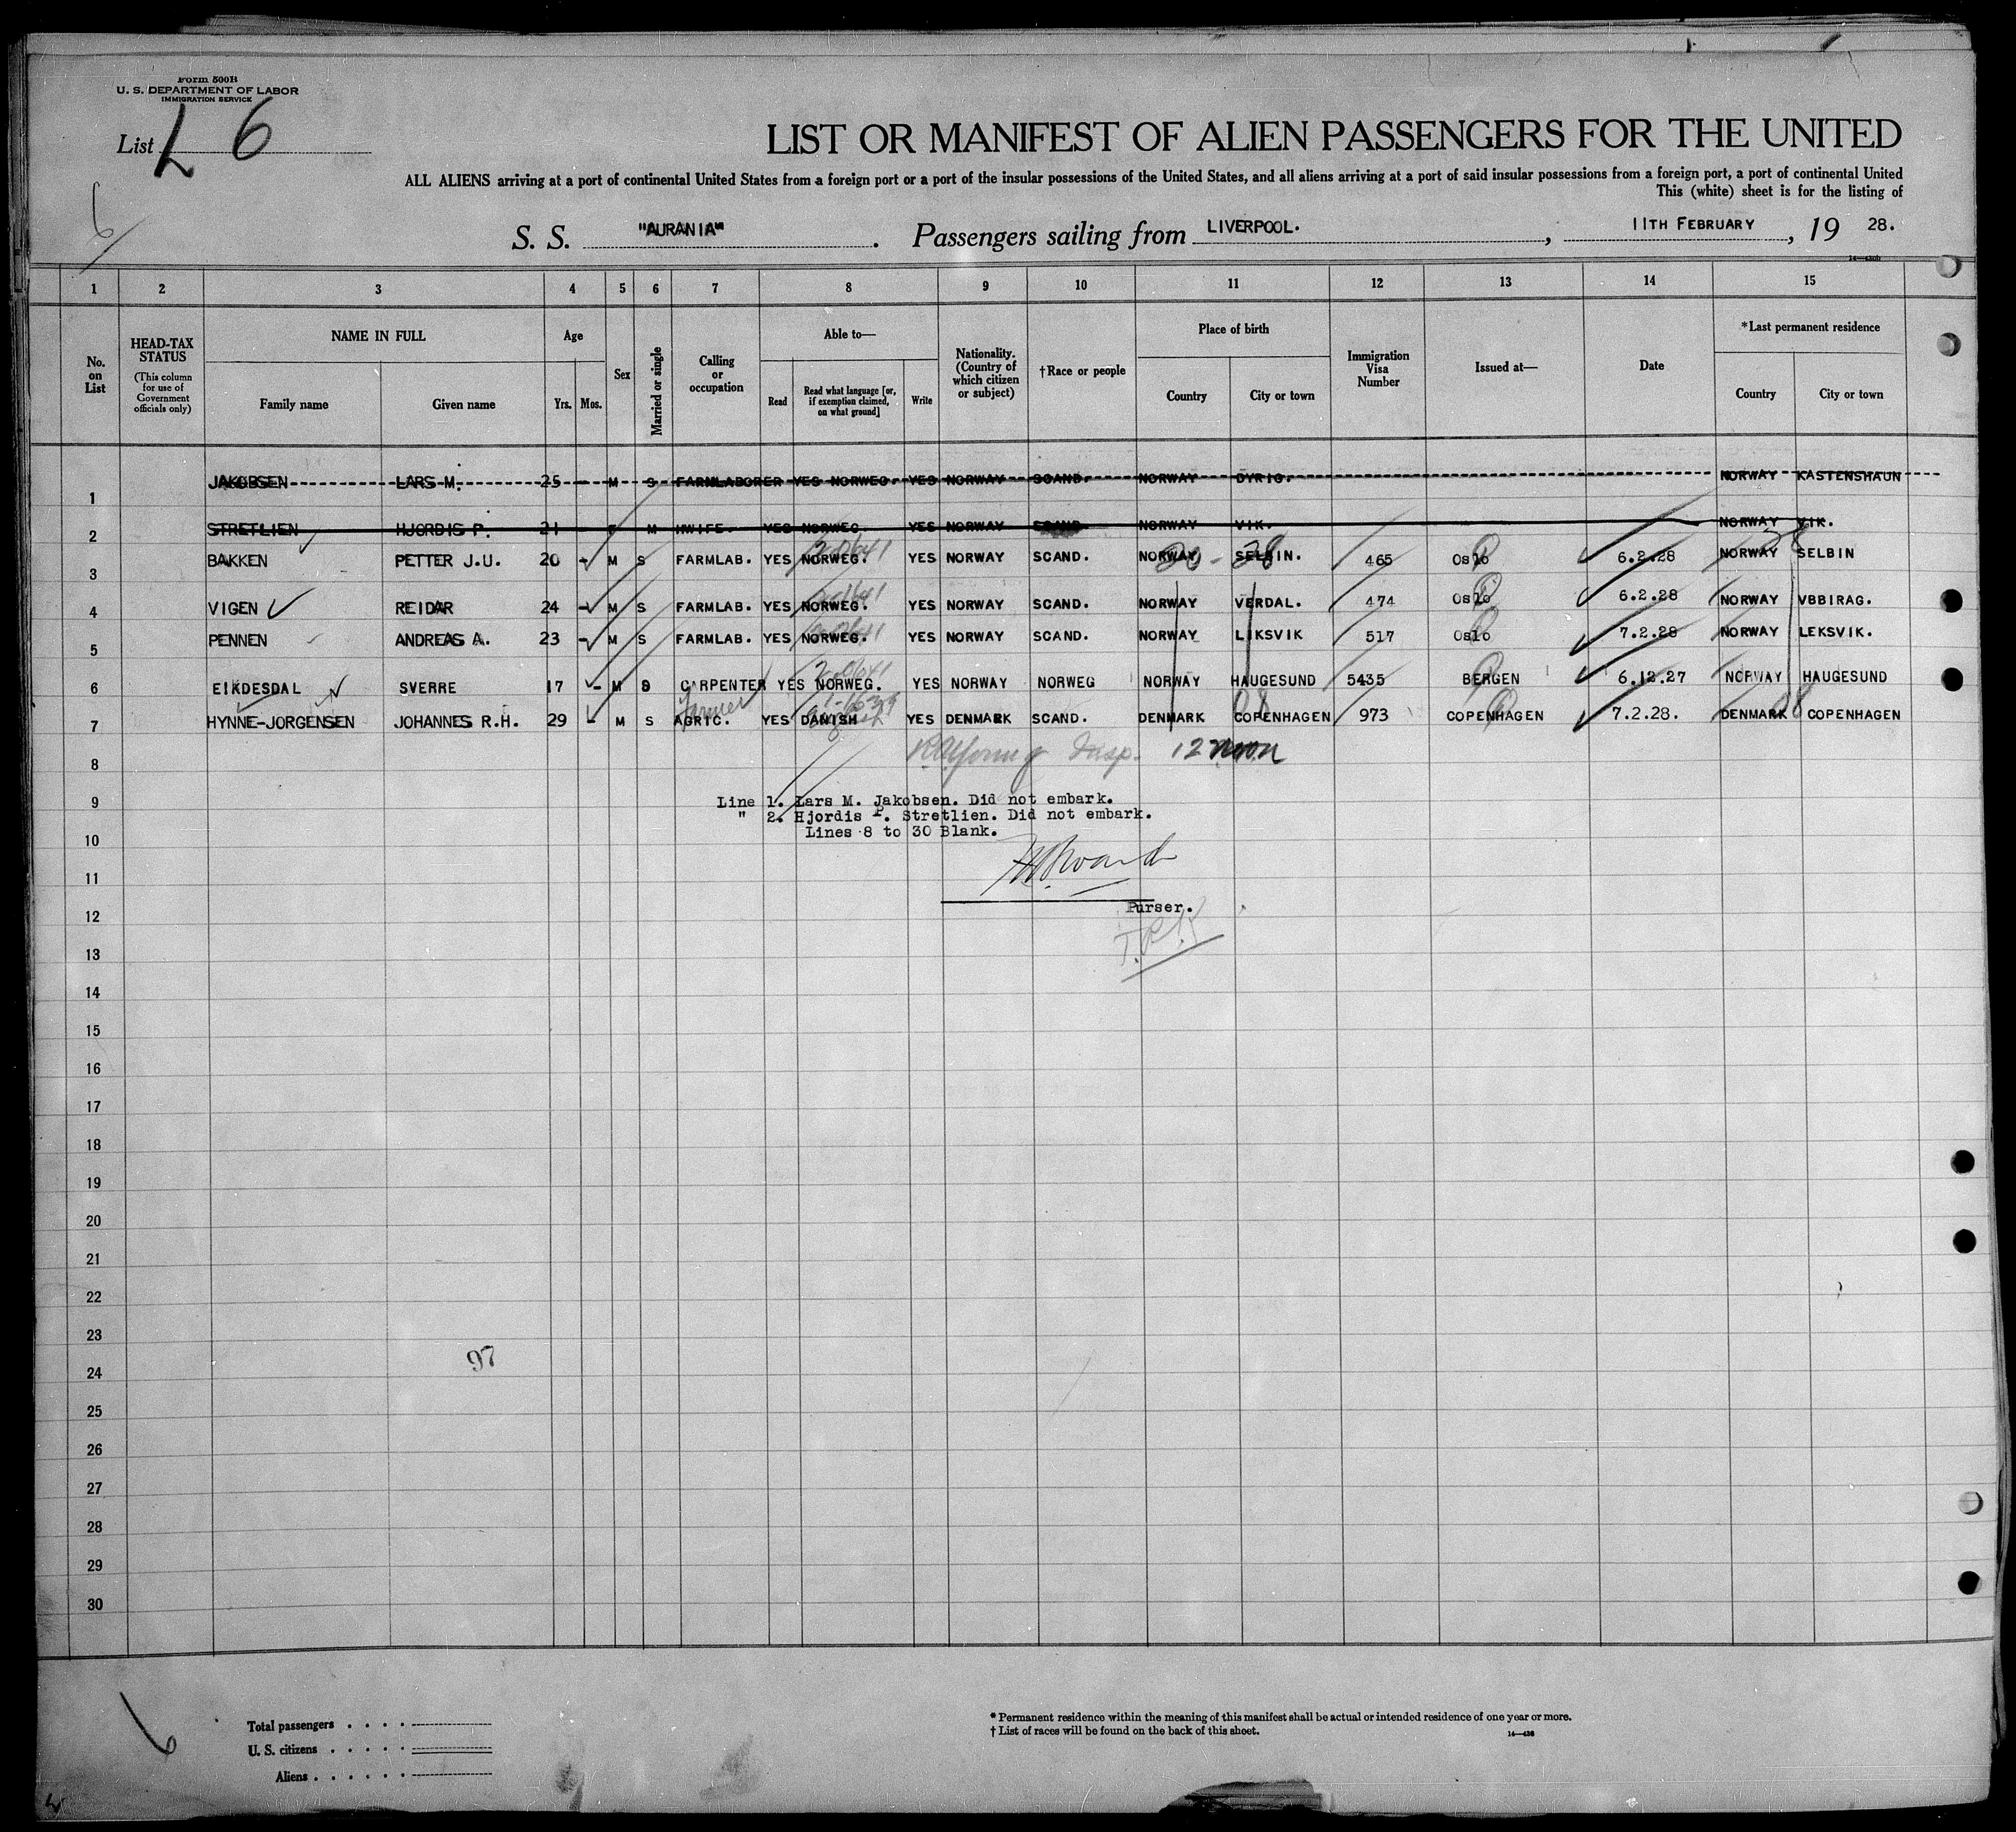 Form 500B
U. S. DEPARTMENT OF LABOR
IMMIGRATION SERVICE
List L 6
LIST OR MANIFEST OF ALIEN PASSENGERS FOR THE UNITED
ALL ALIENS arriving at a port of continental United States from a foreign port or a port of the insular possessions of the United States, and all aliens arriving at a port of said insular possessions from a foreign port, a port of continental United
This (white) sheet is for the listing of
6
S. S. "AURANIA". Passengers sailing from LIVERPOOL., 11TH FEBRUARY, 19 28.
1 2 3 4 5 6 7 8 9 10 11 12 13 14 15
No. on List
HEAD-TAX STATUS (This column for use of Government officials only)
NAME IN FULL
Family name Given name
Age
Yrs. Mos.
Sex
Married or single
Calling or occupation
Able to—
Read
Read what language [or, if exemption claimed, on what ground]
Write
Nationality. (Country of which citizen or subject)
†Race or people
Place of birth
Country City or town
Immigration Visa Number
Issued at—
Date
*Last permanent residence
Country City or town
1 JAKOBSEN LARS M. 25 - M S FARMLABORER YES NORWEG. YES NORWAY SCAND. NORWAY DYRIG. NORWAY KASTENSHAUN
2 STRETLIEN HJORDIS P. 21 - F M HWIFE. YES NORWEG. YES NORWAY SCAND. NORWAY VIK. NORWAY VIK.
3 BAKKEN PETTER J.U. 20 - M S FARMLAB. YES NORWEG. YES NORWAY SCAND. NORWAY SELBIN. 465 Oslo 6.2.28 NORWAY SELBIN
4 VIGEN REIDAR 24 - M S FARMLAB. YES NORWEG. YES NORWAY SCAND. NORWAY VERDAL. 474 Oslo 6.2.28 NORWAY VBBIRAG.
5 PENNEN ANDREAS A. 23 - M S FARMLAB. YES NORWEG. YES NORWAY SCAND. NORWAY LIKSVIK 517 Oslo 7.2.28 NORWAY LEKSVIK.
6 EIKDESDAL SVERRE 17 - M S CARPENTER YES NORWEG. YES NORWAY NORWEG NORWAY HAUGESUND 5435 BERGEN 6.12.27 NORWAY HAUGESUND
farmer
7 HYNNE-JORGENSEN JOHANNES R.H. 29 - M S AGRIC. YES DANISH YES DENMARK SCAND. DENMARK COPENHAGEN 973 COPENHAGEN 7.2.28. DENMARK COPENHAGEN
8 Insp. 12 noon
9 Line 1. Lars M. Jakobsen. Did not embark.
" 2. Hjordis P. Stretlien. Did not embark.
10 Lines 8 to 30 Blank.
11
12 Purser.
13
14
15
16
17
18
19
20
21
22
23
97
24
25
26
27
28
29
30
6
Total passengers . . . .
U. S. citizens . . . . .
Aliens . . . . . .
* Permanent residence within the meaning of this manifest shall be actual or intended residence of one year or more.
† List of races will be found on the back of this sheet.
14—430